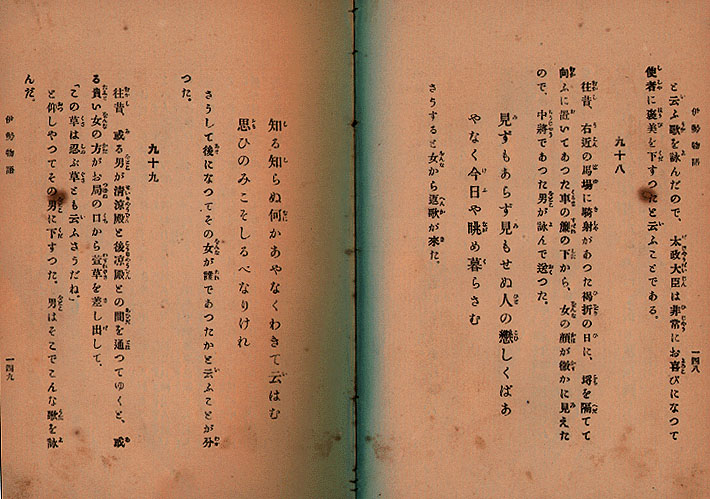 と云ふ歌を詠んだので、太政大臣は非常にお喜びになつて
使者に褒美を下すつたと云ふことである。
九十八
往昔、右近の馬場に騎射があつた褐折の日に、埒を隔てて
向ふに置いてあつた車の簾の下から、女の顔が微かに見えた
ので、中將であつた男が詠んで送つた。
見ずもあらず見もせぬ人の戀しくばあ
やなく今日や眺め暮らさむ
さうすると女から返歌が來た。
一四八
伊勢物語
知る知らぬ何かあやなくわきて云はむ
思ひのみこそしるべなりけれ
さうして後になつてその女が誰であつたかと云ふことが分
つた。
九十九
往昔、或る男が清凉殿と後凉殿との間を通つてゆくと、或
る貴い女の方がお局の口から萱草を差し出して、
「この草は忍ぶ草とも云ふさうだね」
と仰しやつてその男に下すつた。男はそこでこんな歌を詠
んだ。
一四九